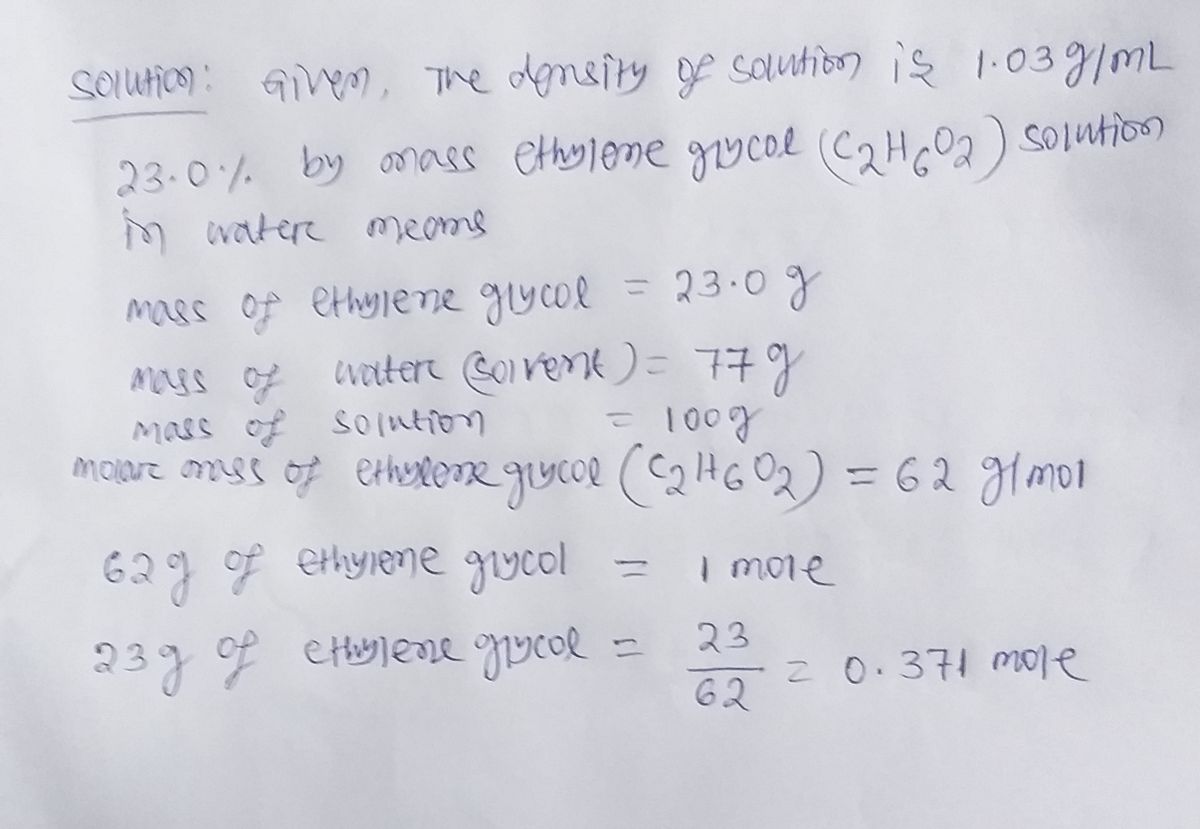 Solution: Given, The density of solution is 1.03 g/mL
23.0% by mass ethylene glycol (C2H6O2) solution
in water means
mass of ethylene glycol = 23.0 g
mass of water (solvent) = 77 g
mass of solution = 100g
molar mass of ethylene glycol (C2H6O2) = 62 g/mol
62g of ethylene glycol = 1 mole
23g of ethylene glycol = 23/62 = 0.371 mole